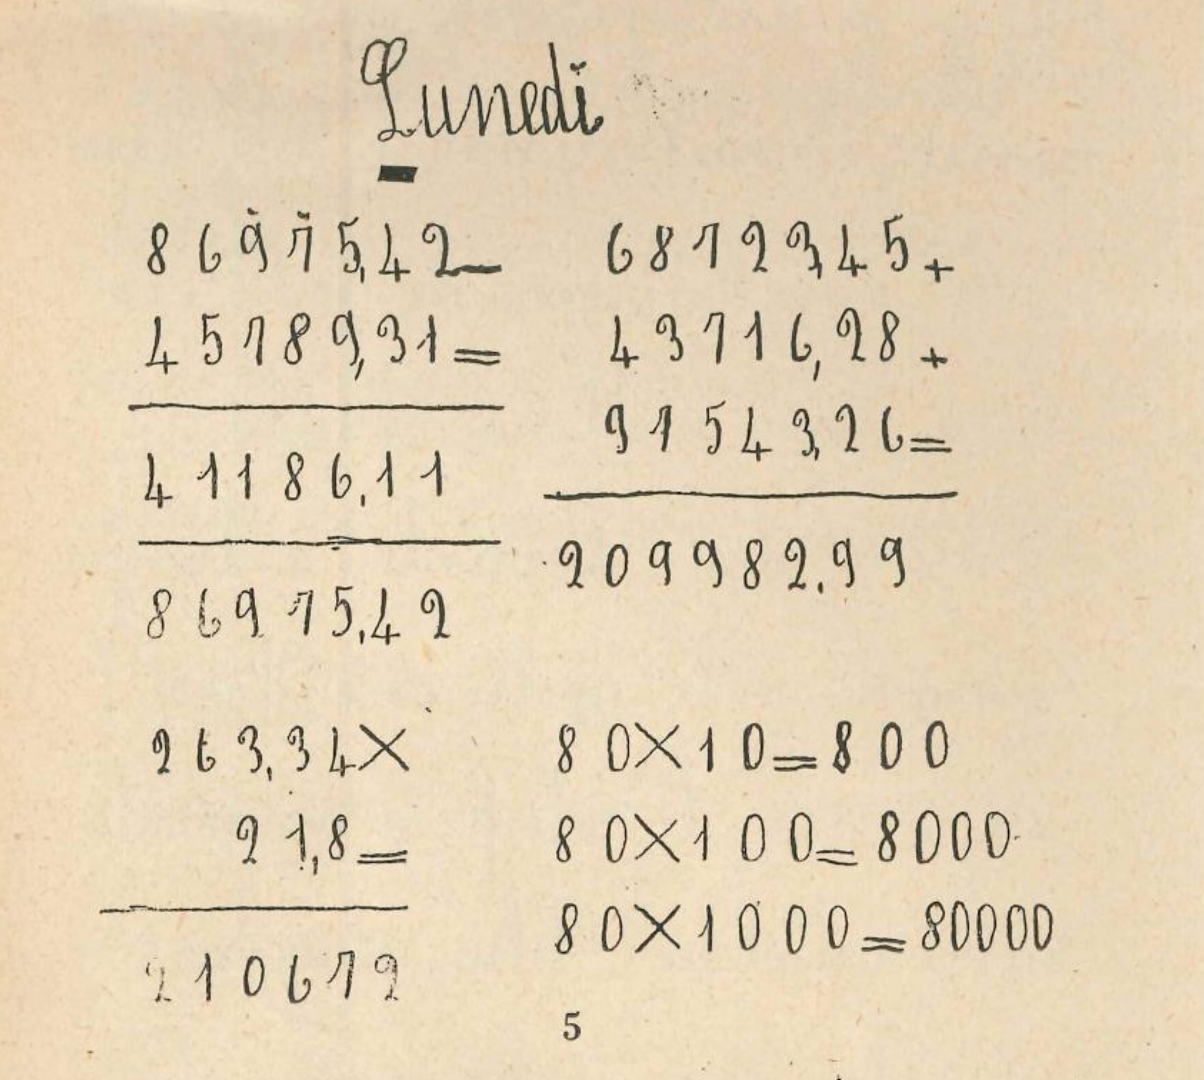 Lunedi
86975,42-
45789,31=
41186,11
86975,42
68723,45+
43716,28+
97543,26=
209982,99
263,34×
21,8=
210672
80×10=800
80×100=8000
80×1000=80000
5